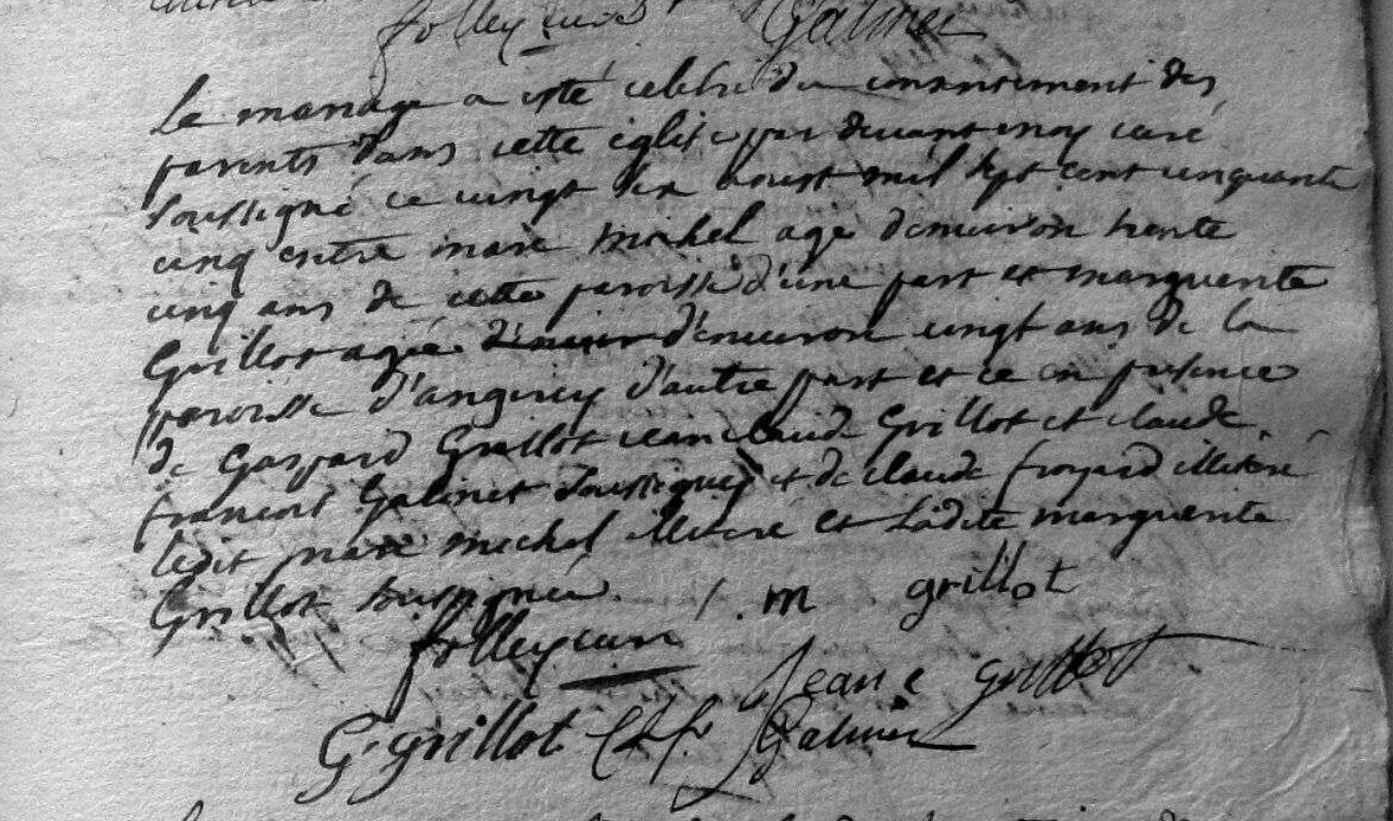 folley curé Galmei
Le mariage a esté celebré du consentement des
parents dans cette eglise par devant moy curé
soussigné ce vingt six aoust mil sept cent cinquante
cinq entre marc michel agé denviron trente
cinq ans de cette paroisse d'une part et marguerite
Grillot agée d'environ vingt ans de la
paroisse d'angirey d'autre part et ce en presence
de Gaspard Grillot jean claude Grillot et claude
francois Galinet soussignez et de claude froyard illiteré
ledit marc michel illiteré et Ladite marguerite
Grillot soussignée. / . m grillot
folley curé
Jean c grillot
G. grillot C f Galinet